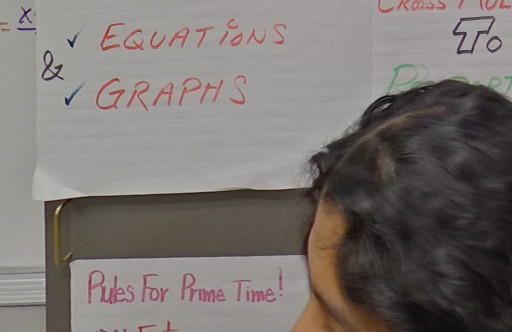 = X
✓ EQUATIONS
&
✓ GRAPHS
CROSS
To
Rules For Prime Time!